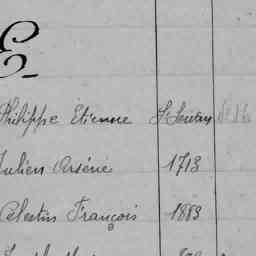 E
Philippe Etienne
Julien Arsène 1713
Celestin François 1883